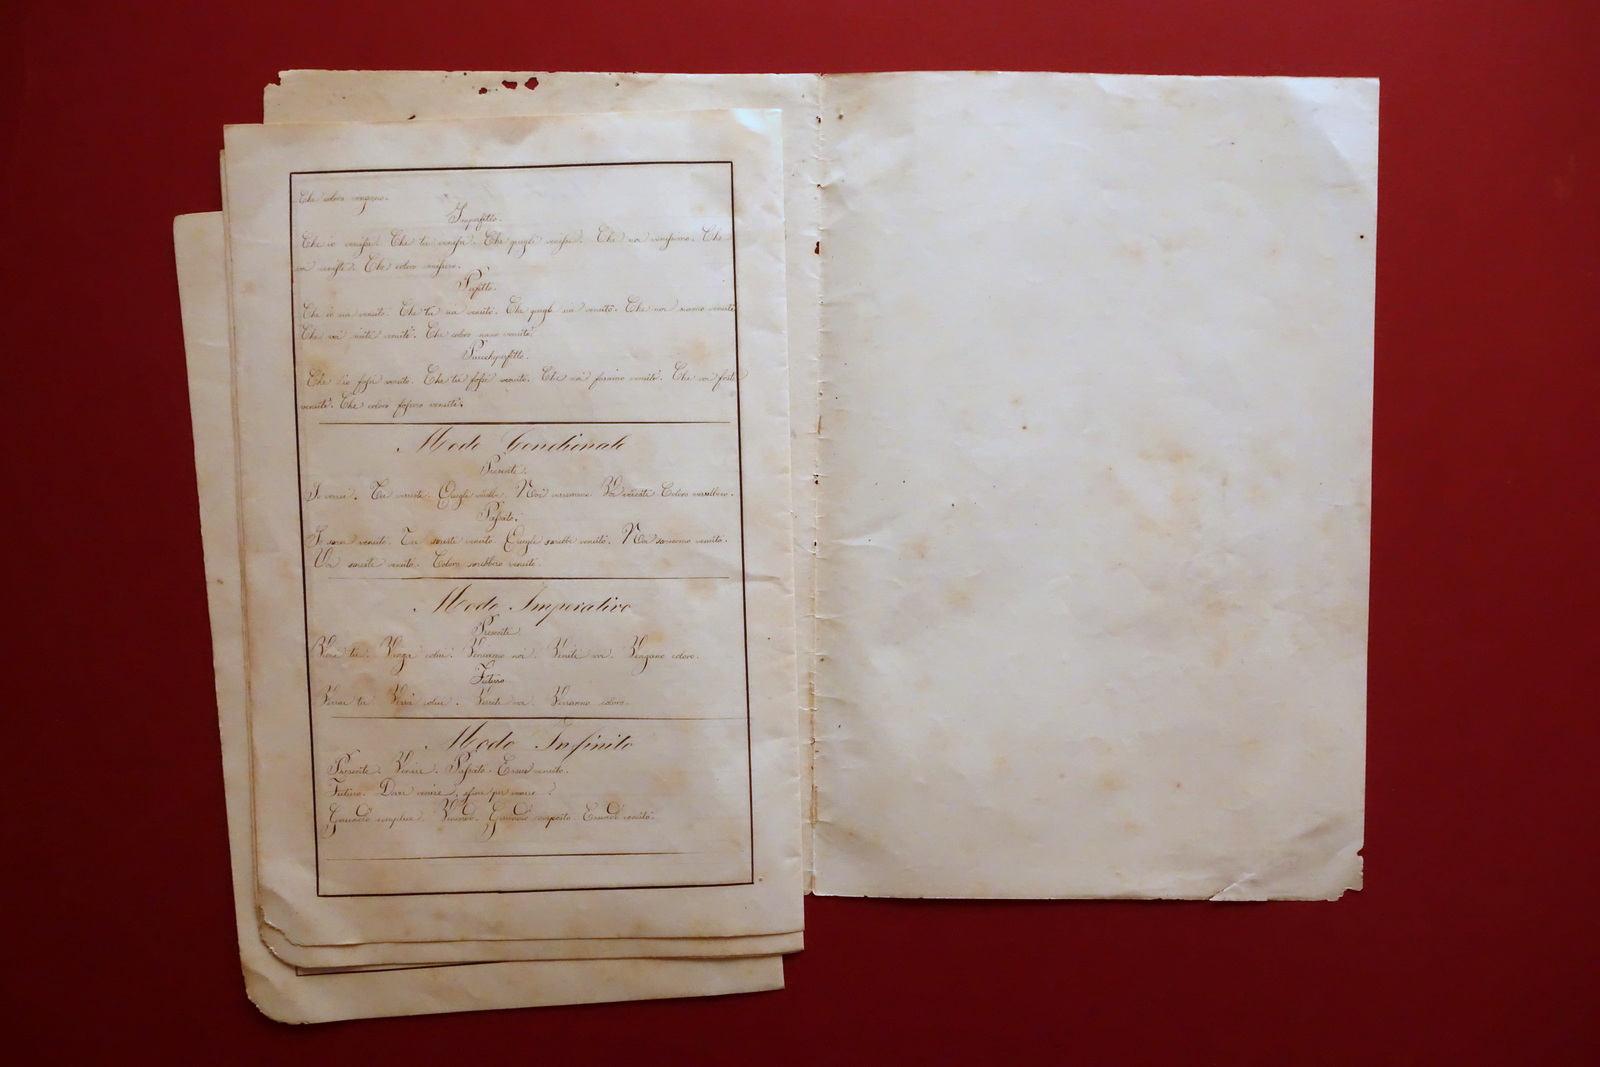 Che coloro vengano.
Imperfetto.
Che io venissi. Che tu venissi. Che quegli venisse. Che noi venissimo. Che
voi veniste. Che coloro venissero.
Passato.
Che io sia venuto. Che tu sia venuto. Che quegli sia venuto. Che noi siamo venuti.
Che voi siate venuti. Che coloro siano venuti.
Piuccheperfetto.
Che io fossi venuto. Che tu fossi venuto. Che noi fossimo venuti. Che voi foste
venuti. Che coloro fossero venuti.
Modo Condionale
Presente.
Io verrei. Tu verresti. Quegli Noi verremmo. Voi verreste. Coloro verrebbero.
Passato.
Io sarei venuto. Tu saresti venuto. Quegli sarebbe venuto. Noi saremmo venuti.
Voi sareste venuti. Coloro sarebbero venuti.
Modo Imperativo
Presente.
Vieni tu. Venga colui. Veniamo noi. Venite voi. Vengano coloro.
Futuro
Verrai tu. Verrà colui. Verrete voi. Verranno coloro.
Modo Infinito
Presente. Venire. Passato. Esser venuto.
Futuro. Dover venire, essere per venire.
Gerundio semplice. Venendo. Gerundio composto. Essendo venuto.